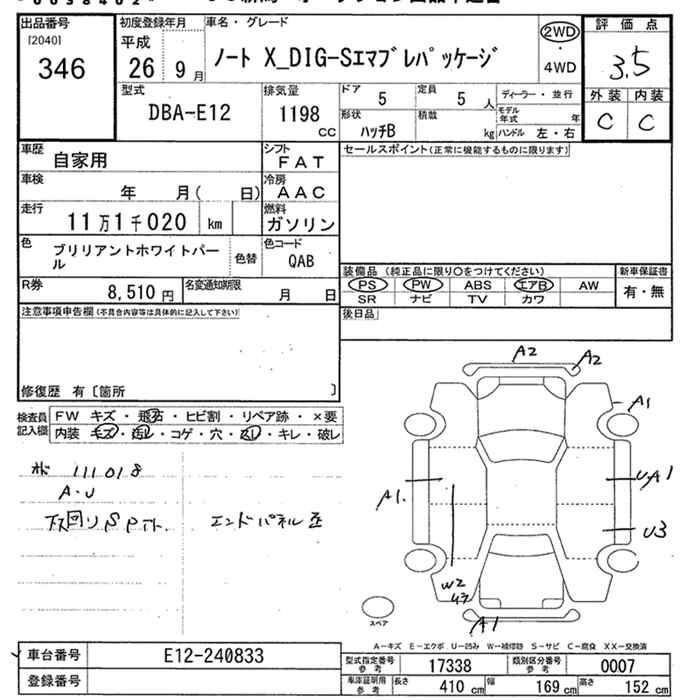 出品番号
[2040]
346
初度登録年月
平成
26 9月
車名・グレード
ノート X_DIG-Sエマブレパッケージ
2WD
・
4WD
評価点
3.5
外装 内装
C C
型式
DBA-E12
排気量
1198
CC
ドア 5
定員 5 人
ディーラー・並行
形状 ハッチB
積載 kg
モデル年式 年
ハンドル 左・右
車歴 自家用
シフト FAT
セールスポイント(正常に機能するものに限ります)
車検 年 月( 日)
冷房 AAC
走行 11万1千020 km
燃料 ガソリン
色 ブリリアントホワイトパール
色替
色コード QAB
装備品(純正品に限り○をつけてください)
新車保証書
PS PW ABS エアB AW
SR ナビ TV カワ
有・無
R券 8,510円
名変通知期限 月 日
後日品
注意事項申告欄(不具合内容等は具体的に記入して下さい)
修復歴 有〔箇所 〕
検査員記入欄
FW キズ・飛石・ヒビ割・リペア跡・×要
内装 キズ・汚レ・コゲ・穴・スレ・キレ・破レ
111018
A・U
下回りSPサト.
エンドパネル歪
A2
A2
A1
A1.
U.A1
U3
W2
A1
スペア
A-キズ E-エクボ U-凹み W-補修跡 S-サビ C-腐食 XX-交換済
車台番号 E12-240833
型式指定番号 参考 17338
類別区分番号 参考 0007
登録番号
車庫証明用 参考 長さ 410cm 幅 169cm 高さ 152cm